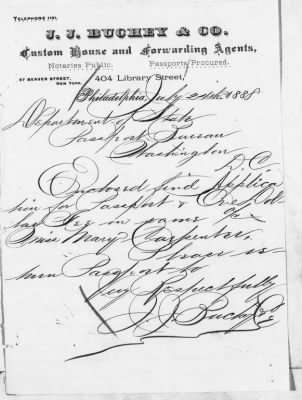 TELEPHONE 1191.
J. J. BUCHEY & CO.
Custom House and Forwarding Agents,
Notaries Public. Passports Procured.
57 BEAVER STREET,
NEW YORK.
404 Library Street,
Philadelphia, July 24th 1888
Department of State
Passport Bureau
Washington
D. C.
Enclosed find Applica
tion for Passport & One Dol-
lar Fee in same of
Miss Mary Carpenter,
Please re-
turn Passport to
Very Respectfully
J. J. Buchey & Co